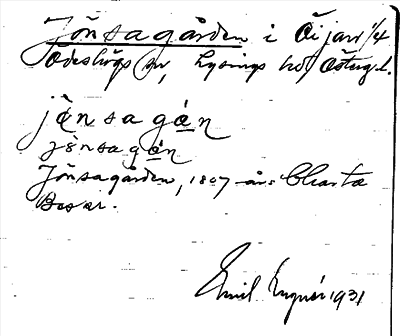 Jönsagården i Öjan 1/4
Ödeshögs sn, Lysings hd, Östergl.
jönsagán
jönsagán
Jönsagården, 1807 års Charta
Beskr.
Emil 1931